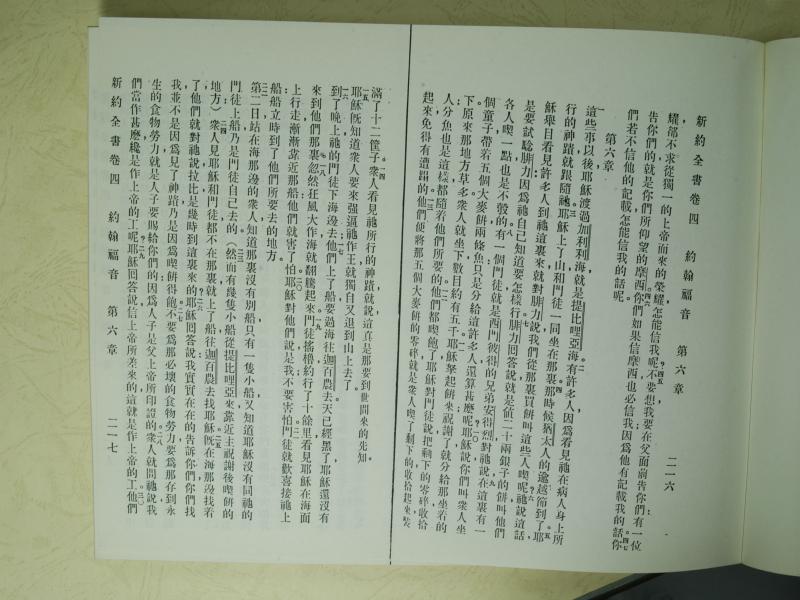 新約全書卷四　約翰福音　第六章　二一六
耀卻不求從獨一的上帝面來的榮耀怎能信我呢不要想我要在父面前告你們有一位
告你們的就是你們所仰望的摩西你們如果信摩西也必信我因爲他有記載我的話你
們若不信他的記載怎能信我的話呢
第六章
這些事以後耶穌渡過加利利海就是提比哩亞海有許多人因爲看見祂在病人身上所
行的神蹟就跟隨祂耶穌上了山和門徒一同坐在那裏那時候猶太人的逾越節到了耶
穌舉目看見許多人到祂這裏來就對腓力說我們從那裏買餅叫這些人喫呢祂說這話
是要試騐腓力因爲祂自己知道要怎樣行腓力回答說就是値二十兩銀子的餅叫他們
各人喫一點也是不彀的有一個門徒就是西門彼得的兄弟安得烈對祂說在這裏有一
個童子帶着五個大麥餅兩條魚只是分給這許多人還算甚麼呢耶穌說你們叫衆人坐
下原來那地方草多衆人就坐下數目約有五千耶穌拏起餅來祝謝了就分給那坐着的
人分魚也是這樣都隨着他們所要的他們都喫飽了耶穌對門徒說把剩下的零碎收拾
起來免得有遭蹋的他們便將那五個大麥餅的零碎就是衆人喫了剩下的收拾起來裝
滿了十二筐子衆人看見祂所行的神蹟就說這真是那要到世間來的先知
耶穌旣知道衆人要來強逼祂作王就獨自又退到山上去了
到了晚上祂的門徒下海邊去他們上了船要過海往迦百農去天已經黑了耶穌還沒有
來到他們那裏忽然狂風大作海就翻騰起來門徒搖櫓約行了十餘里看見耶穌在海面
上行走漸漸靠近那船他們就害了怕耶穌對他們說是我不要害怕門徒就歡喜接祂上
船船立時到了他們所要去的地方
第二日站在海那邊的衆人知道那裏沒有別船只有一隻小船又知道耶穌沒有同祂的
門徒上船乃是門徒自己去的（然而有幾隻小船從提比哩亞來靠近主祝謝後喫餅的
地方）衆人見耶穌和門徒都不在那裏就上了船往迦百農去找耶穌旣在海那邊找着
了他們就對祂說拉比是幾時到這裏來的耶穌回答說我實實在在的告訴你們你們找
我並不是因爲見了神蹟乃是因爲喫餅得飽不要爲那必壞的食物勞力要爲那存到永
生的食物勞力就是人子要賜給你們的因爲人子是父上帝所印證的衆人就問祂說我
們當作甚麼纔是作上帝的工呢耶穌回答說信上帝所差來的這就是作上帝的工他們
新約全書卷四　約翰福音　第六章　二一七